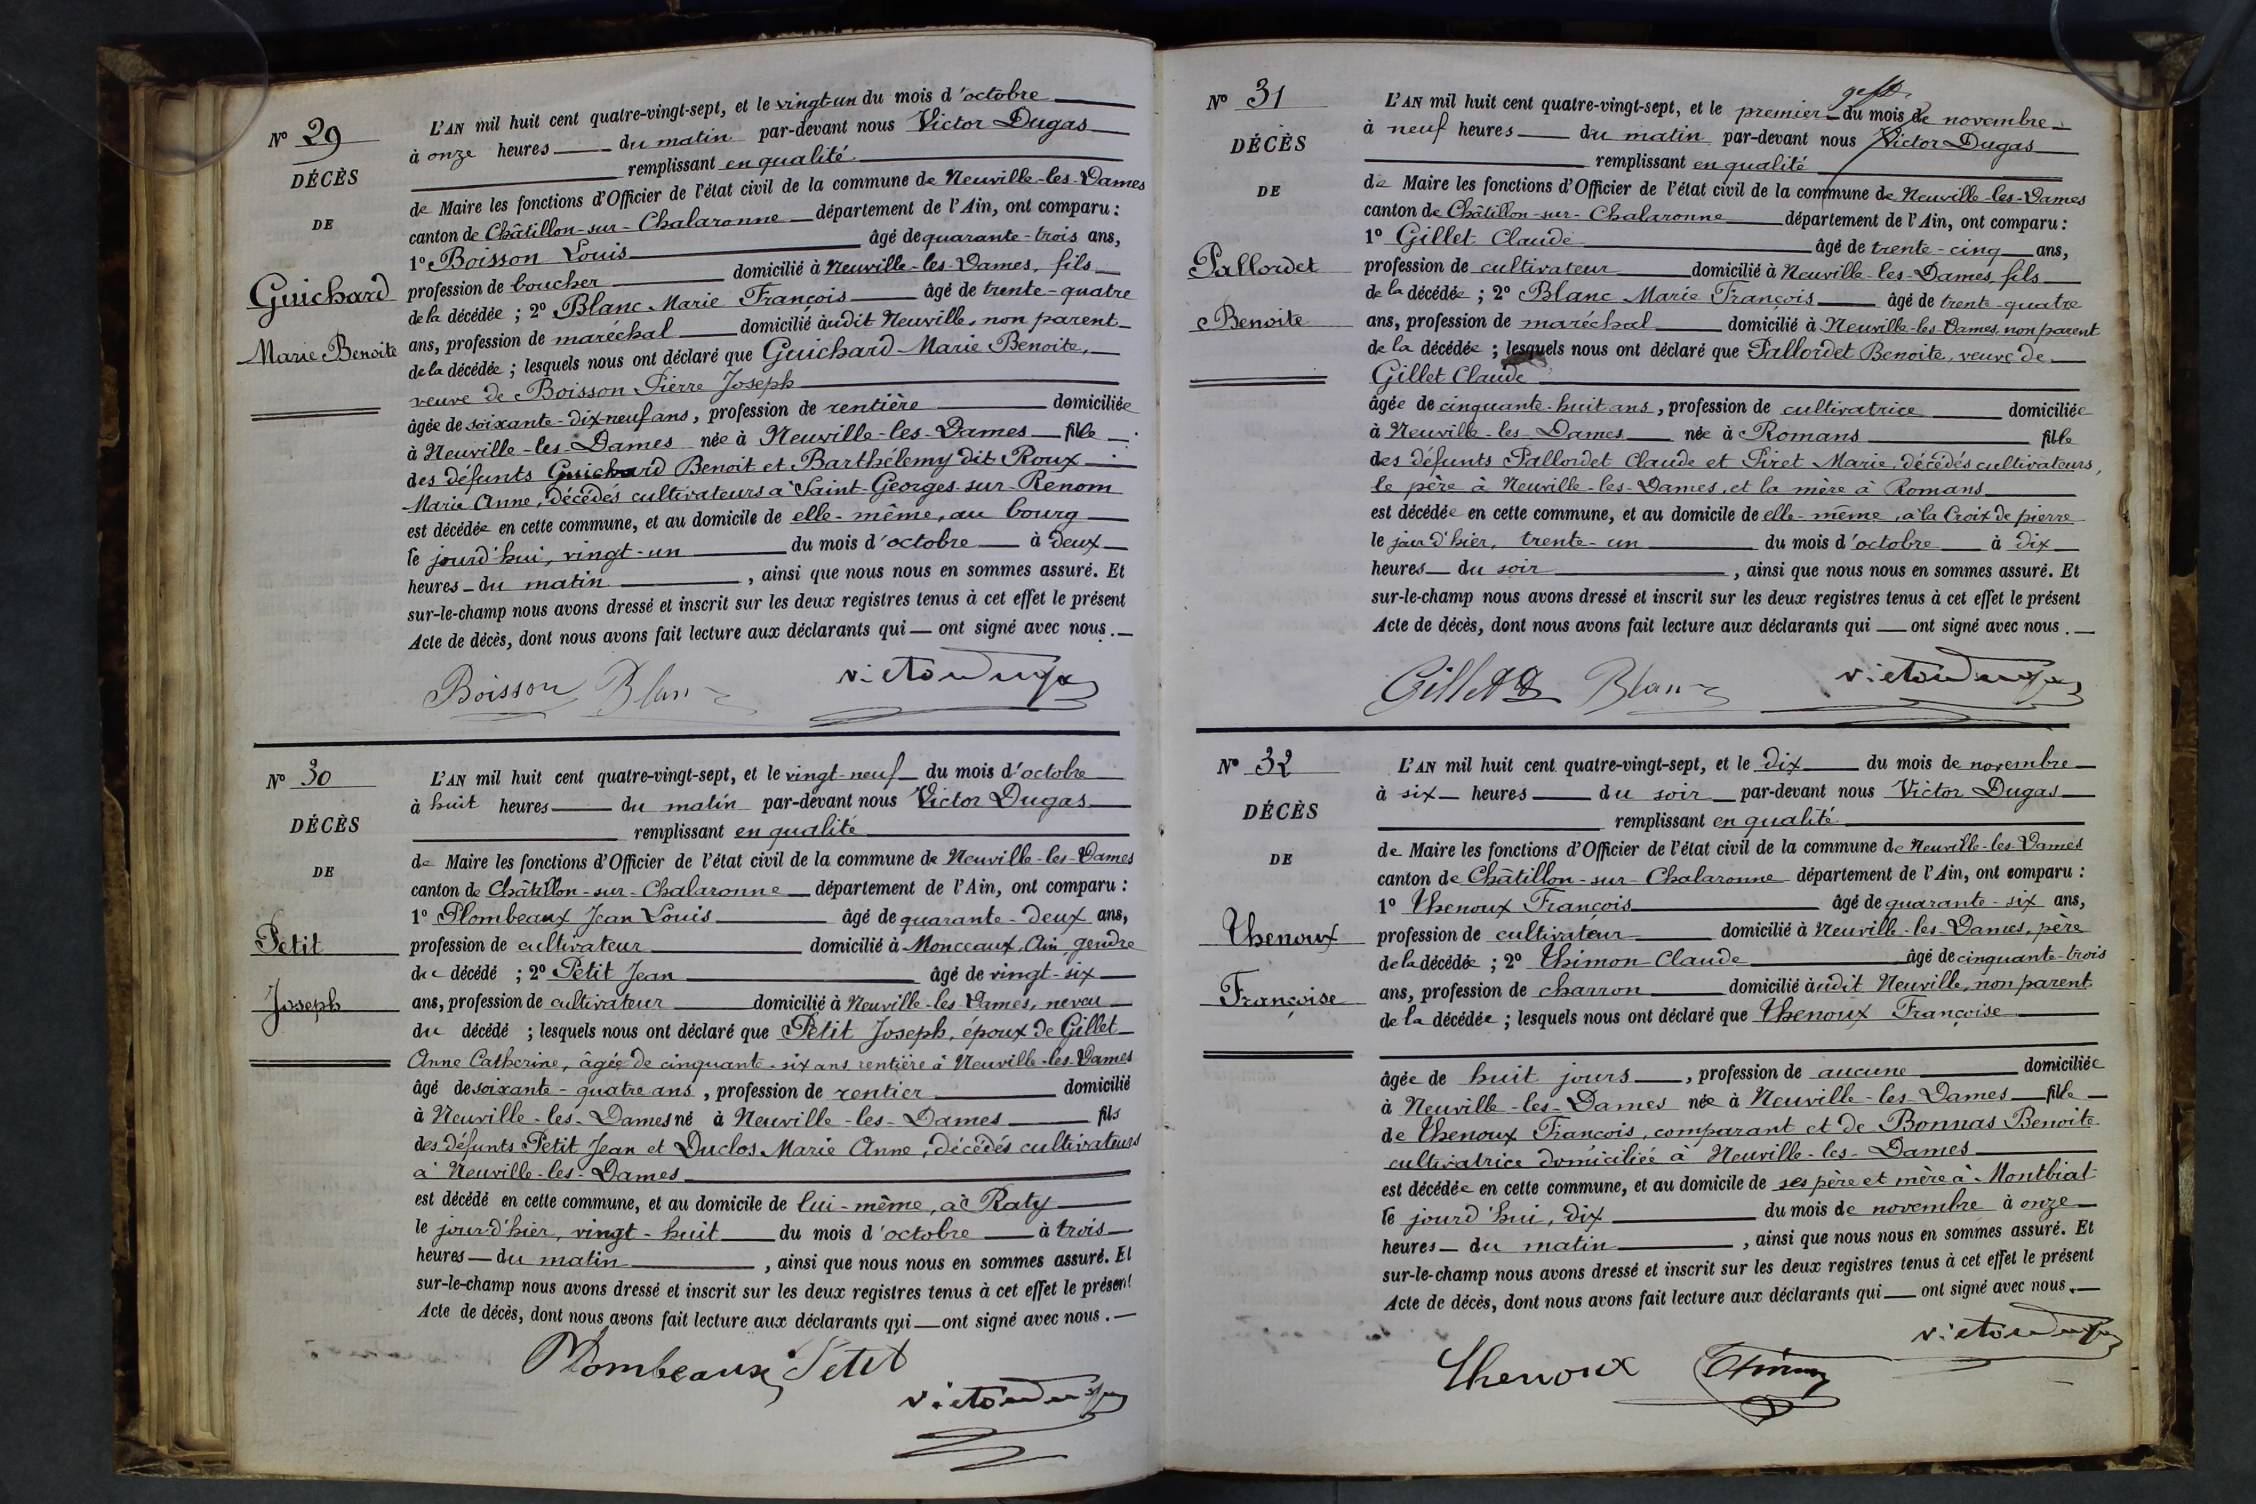 Nº 29
DÉCÈS
DE
Guichard
Marie Benoite
L'AN mil huit cent quatre-vingt-sept, et le vingt-un du mois d'octobre
à onze heures du matin par-devant nous Victor Dugas
remplissant en qualité
de Maire les fonctions d'Officier de l'état civil de la commune de Neuville-les-Dames
canton de Châtillon-sur-Chalaronne département de l'Ain, ont comparu :
1º Boisson Louis âgé de quarante-trois ans,
profession de boucher domicilié à Neuville-les-Dames, fils
de la décédée ; 2º Blanc Marie François âgé de trente-quatre
ans, profession de maréchal domicilié àudit Neuville, non parent
de la décédée ; lesquels nous ont déclaré que Guichard Marie Benoite,
veuve de Boisson Pierre Joseph
âgée de soixante-dix-neuf ans, profession de rentière domiciliée
à Neuville-les-Dames née à Neuville-les-Dames fille
des défunts Guichard Benoit et Barthélemy dit Roux
Marie Anne, décédés cultivateurs à Saint-Georges-sur-Renom
est décédée en cette commune, et au domicile de elle-même, au bourg
le jourd'hui, vingt-un du mois d'octobre à deux
heures du matin, ainsi que nous nous en sommes assuré. Et
sur-le-champ nous avons dressé et inscrit sur les deux registres tenus à cet effet le présent
Acte de décès, dont nous avons fait lecture aux déclarants qui ont signé avec nous.
Boisson Blanc Victor Dugas
Nº 30
DÉCÈS
DE
Petit
Joseph
L'AN mil huit cent quatre-vingt-sept, et le vingt-neuf du mois d'octobre
à huit heures du matin par-devant nous Victor Dugas
remplissant en qualité
de Maire les fonctions d'Officier de l'état civil de la commune de Neuville-les-Dames
canton de Châtillon-sur-Chalaronne département de l'Ain, ont comparu :
1º Plombeaux Jean Louis âgé de quarante-deux ans,
profession de cultivateur domicilié à Monceaux, Ain, gendre
du décédé ; 2º Petit Jean âgé de vingt-six
ans, profession de cultivateur domicilié à Neuville-les-Dames, neveu
du décédé ; lesquels nous ont déclaré que Petit Joseph, époux de Gillet
Anne Catherine, âgée de cinquante-six ans rentière à Neuville-les-Dames
âgé de soixante-quatre ans, profession de rentier domicilié
à Neuville-les-Dames né à Neuville-les-Dames fils
des défunts Petit Jean et Duclos Marie Anne, décédés cultivateurs
à Neuville-les-Dames
est décédé en cette commune, et au domicile de lui-même, à Raty
le jour d'hier, vingt-huit du mois d'octobre à trois
heures du matin, ainsi que nous nous en sommes assuré. Et
sur-le-champ nous avons dressé et inscrit sur les deux registres tenus à cet effet le présent
Acte de décès, dont nous avons fait lecture aux déclarants qui ont signé avec nous.
Plombeaux Petit
Victor Dugas
Nº 31
DÉCÈS
DE
Pallordet
Benoite
L'AN mil huit cent quatre-vingt-sept, et le premier du mois de novembre
à neuf heures du matin par-devant nous Victor Dugas
remplissant en qualité
de Maire les fonctions d'Officier de l'état civil de la commune de Neuville-les-Dames
canton de Châtillon-sur-Chalaronne département de l'Ain, ont comparu :
1º Gillet Claude âgé de trente-cinq ans,
profession de cultivateur domicilié à Neuville-les-Dames, fils
de la décédée ; 2º Blanc Marie François âgé de trente-quatre
ans, profession de maréchal domicilié à Neuville-les-Dames, non parent
de la décédée ; lesquels nous ont déclaré que Pallordet Benoite, veuve de
Gillet Claude
âgée de cinquante-huit ans, profession de cultivatrice domiciliée
à Neuville-les-Dames née à Romans fille
des défunts Pallordet Claude et Piret Marie, décédés cultivateurs,
le père à Neuville-les-Dames, et la mère à Romans
est décédée en cette commune, et au domicile de elle-même, à la Croix de pierre
le jour d'hier, trente-un du mois d'octobre à dix
heures du soir, ainsi que nous nous en sommes assuré. Et
sur-le-champ nous avons dressé et inscrit sur les deux registres tenus à cet effet le présent
Acte de décès, dont nous avons fait lecture aux déclarants qui ont signé avec nous.
Gillet Blanc Victor Dugas
Nº 32
DÉCÈS
DE
Thenoux
Françoise
L'AN mil huit cent quatre-vingt-sept, et le dix du mois de novembre
à six heures du soir par-devant nous Victor Dugas
remplissant en qualité
de Maire les fonctions d'Officier de l'état civil de la commune de Neuville-les-Dames
canton de Châtillon-sur-Chalaronne département de l'Ain, ont comparu :
1º Thenoux François âgé de quarante-six ans,
profession de cultivateur domicilié à Neuville-les-Dames, père
de la décédée ; 2º Thimon Claude âgé de cinquante-trois
ans, profession de charron domicilié àudit Neuville, non parent
de la décédée ; lesquels nous ont déclaré que Thenoux Françoise
âgée de huit jours, profession de aucune domiciliée
à Neuville-les-Dames née à Neuville-les-Dames fille
de Thenoux François, comparant et de Bonnas Benoite
cultivatrice domiciliée à Neuville-les-Dames
est décédée en cette commune, et au domicile de ses père et mère à Montbiat
le jourd'hui, dix du mois de novembre à onze
heures du matin, ainsi que nous nous en sommes assuré. Et
sur-le-champ nous avons dressé et inscrit sur les deux registres tenus à cet effet le présent
Acte de décès, dont nous avons fait lecture aux déclarants qui ont signé avec nous.
Victor Dugas
Thenoux Thimon